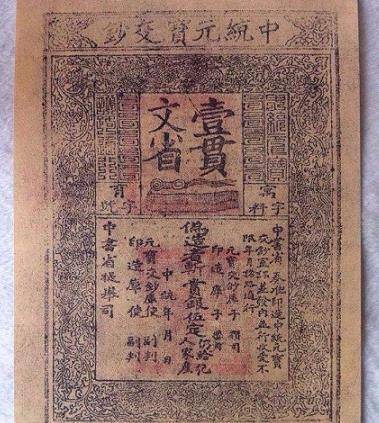 中統元寶交鈔
壹貫
文省
字料
字號
中書省 奏准印造中統元寶
交鈔宣課差發內並行收受不
限年月諸路通行
元寶交鈔庫子 攢司
印造庫子 攢司
偽造者斬 賞銀伍定 仍給犯人家產
中統 年 月 日
元寶交鈔庫使 副判
印造庫使 副判
中書省提舉司